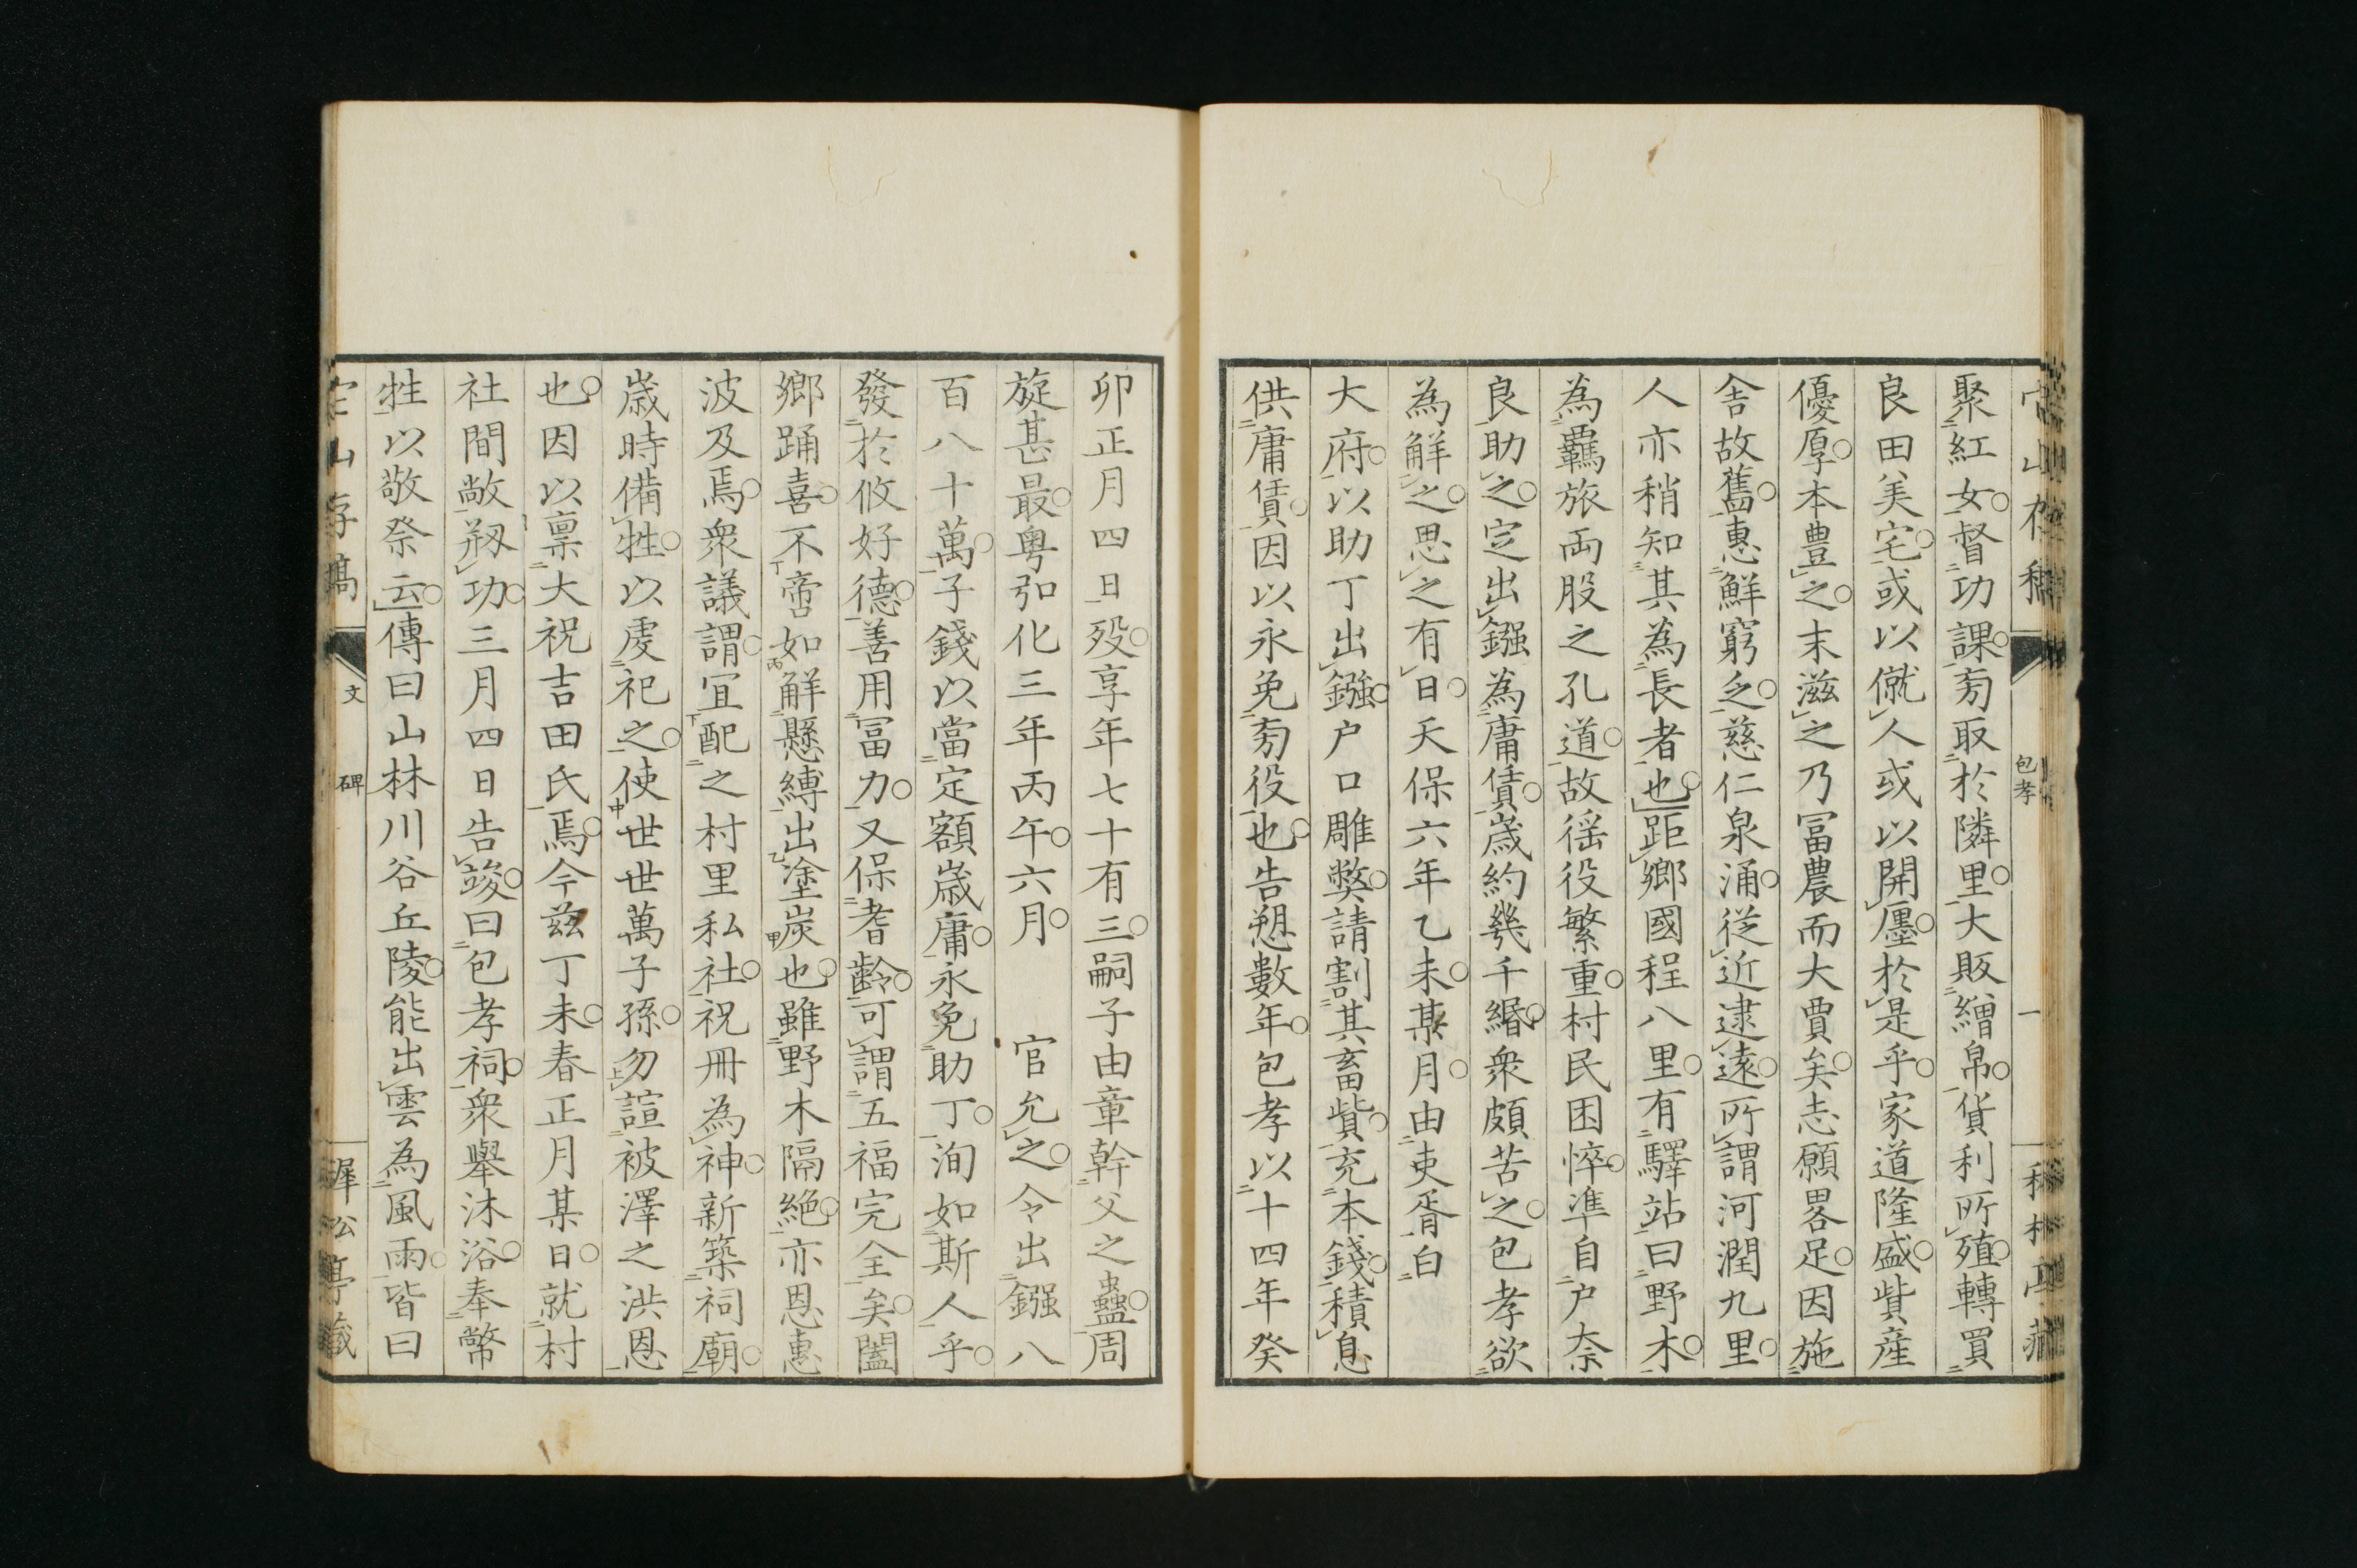 聚紅女督功課旁取於隣里大販繒帛貨利所殖轉買
良田美宅或以僦人或以開廛於是乎家道隆盛貲産
優厚本豊之末滋之乃冨農而大賈矣志願畧足因施
舎故舊惠鮮窮乏慈仁泉涌従近逮遠所謂河潤九里
人亦稍知其為長者也距鄉國程八里有驛站曰野木
為羈旅両股之孔道故徭役繁重村民困悴準自户奈
良助之定出鏹為庸賃歳約幾千緡衆頗苦之包孝欲
為解之思之有日天保六年乙未某月由吏胥白
大府以助丁出鏹户口雕弊請割其畜貲充本錢積息
供庸賃因以永免旁役也告愬數年包孝以十四年癸
包孝
一
卯正月四日殁享年七十有三嗣子由章幹父之蠱周
旋甚最粤弘化三年丙午六月　官允之令出鏹八
百八十萬子錢以當定額歳庸永免助丁洵如斯人乎
發於攸好德善用冨力又保耆齡可謂五福完全矣闔
鄉踊喜不啻如解懸縛出塗炭也雖野木隔絶亦恩惠
波及焉衆議謂宜配之村里私社祝冊為神新築祠廟
歳時備牲以虔祀之使世世萬子孫勿諠被澤之洪恩
也因以稟大祝吉田氏焉今茲丁未春正月某日就村
社間敞剏功三月四日告竣曰包孝祠衆舉沐浴奉幣
牲以敬祭云傳曰山林川谷丘陵能出雲為風雨皆曰
定山存稿
文
碑
遲松亭藏